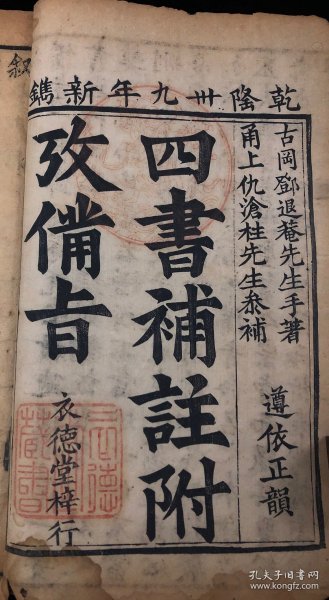 乾隆卅九年新鐫
古岡鄧退菴先生手著
甬上仇滄柱先生叅補
遵依正韻
四書補註附
攷備旨
衣德堂梓行
孔夫子旧书网